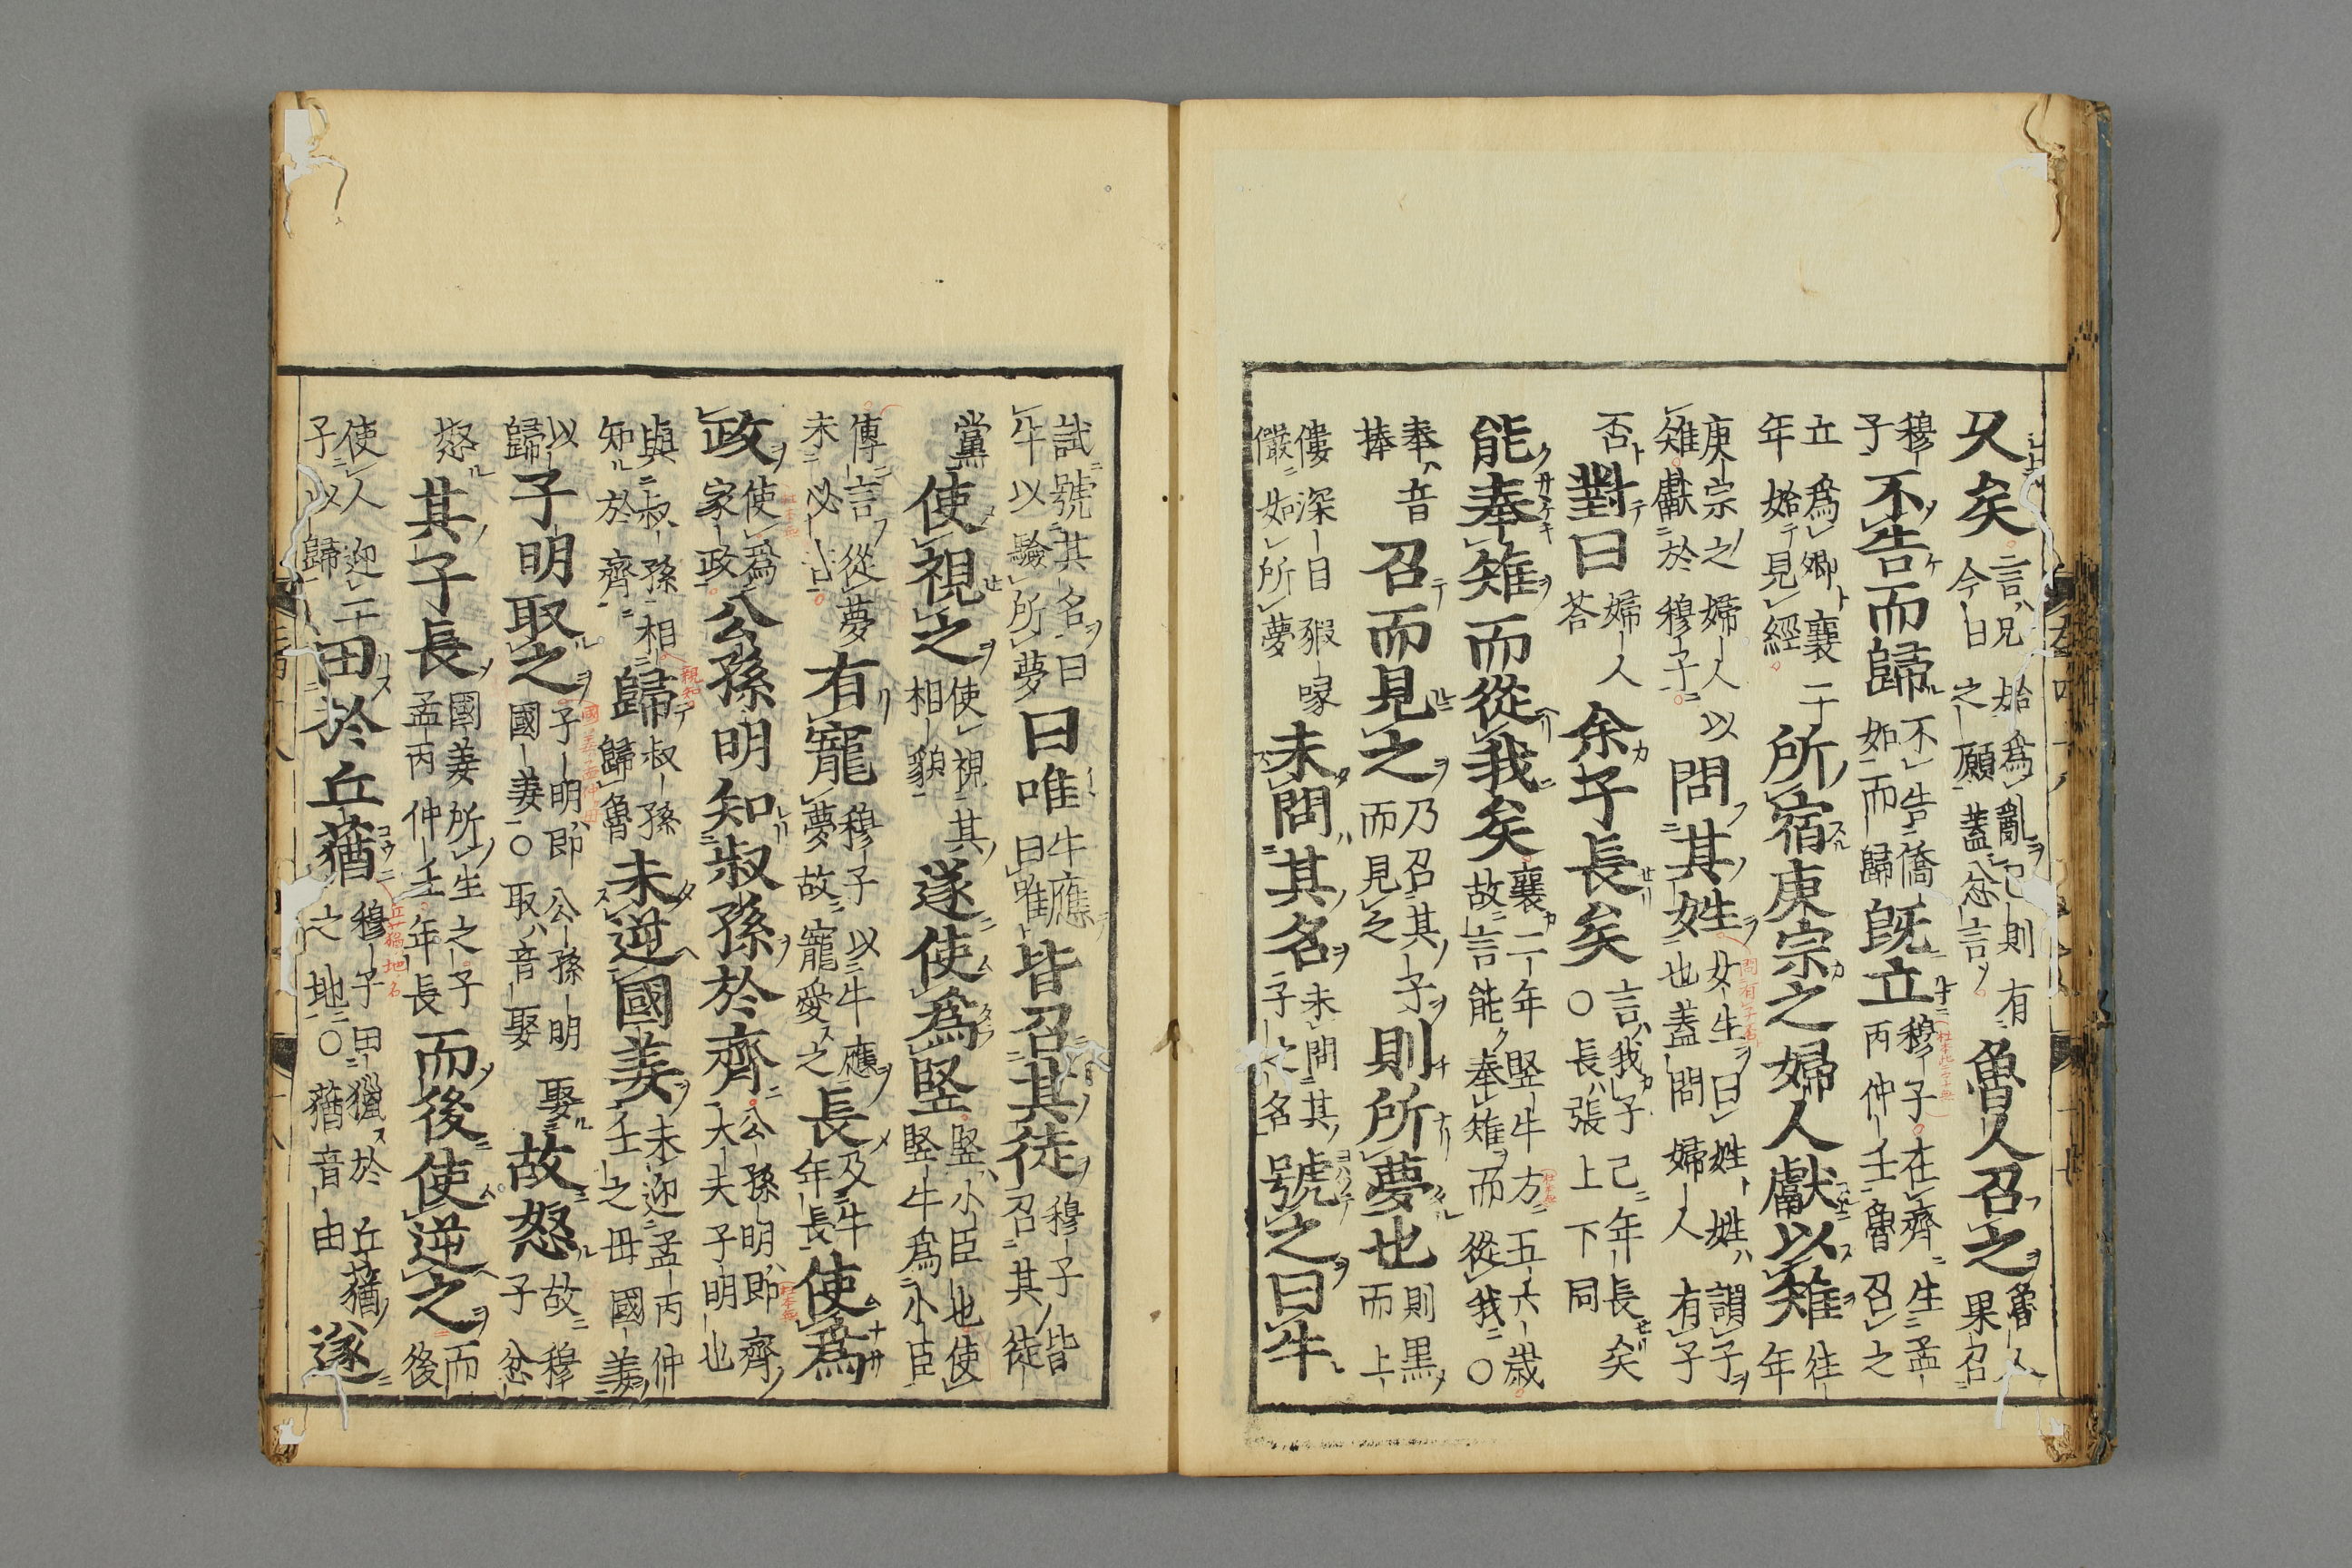 久矣 言兄始爲亂已則有
今日之願蓋忿言 魯人召之 魯人
果召
穆
子 不告而歸 不告僑
如而歸 既立 穆子在齊生孟
丙仲壬魯召之
立爲卿襄二
年始見經 所宿庚宗之婦人獻以雉 往
年
庚宗之婦人以
雉獻於穆子 問其姓 女生曰姓姓謂子
也蓋問婦人有子
否 對曰 婦人
答 余子長矣 言我子已年長矣
○長張上下同
能奉雉而從我矣 襄二年豎牛方五六歲
故言能奉雉而從我○
奉音
捧 召而見之 乃召其子
而見之 則所夢也 則黑
而上
僂深目豭喙
儼如所夢 未問其名 未問其
子之名 號之曰牛
試號其名曰
牛以驗所夢 曰唯 牛應
曰唯 皆召其徒 穆子皆
召其徒
黨 使視之 使視其
相貌 遂使爲豎 豎小臣也使
豎牛爲小臣
傳言從夢
未必 有寵 穆子以牛應
夢故寵愛之 長 及牛
年長 使爲
政 使爲
家政 公孫明知叔孫於齊 公孫明即齊
大夫子明也
與叔孫相
知於齊 歸 叔孫
歸魯 未逆國姜 未迎孟丙仲
壬之母國姜
以
歸 子明取之 子明即公孫明娶
國姜○取音娶 故怒 故穆
子忿
怒 其子長 國姜所生之子
孟丙仲壬年長 而後使逆之 而
後
使人迎二
子以歸 田於丘蕕 穆子田獵於丘蕕
之地○蕕音由 遂